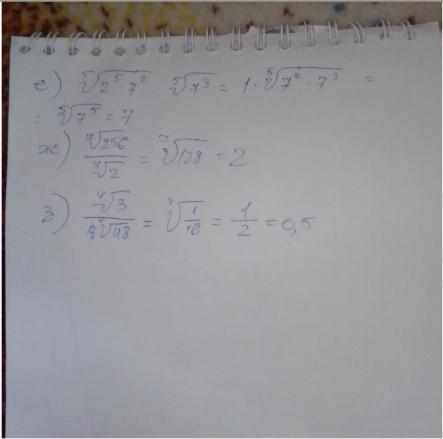 е) ⁵√(2⁵ · 7²) · ⁵√(7³) = 1 · ⁵√(7² · 7³) =
= ⁵√(7⁵) = 7
ж) ⁷√256 / ⁷√2 = ⁷√128 = 2
з) ⁴√3 / ⁴√48 = ⁴√(1/16) = 1/2 = 0,5